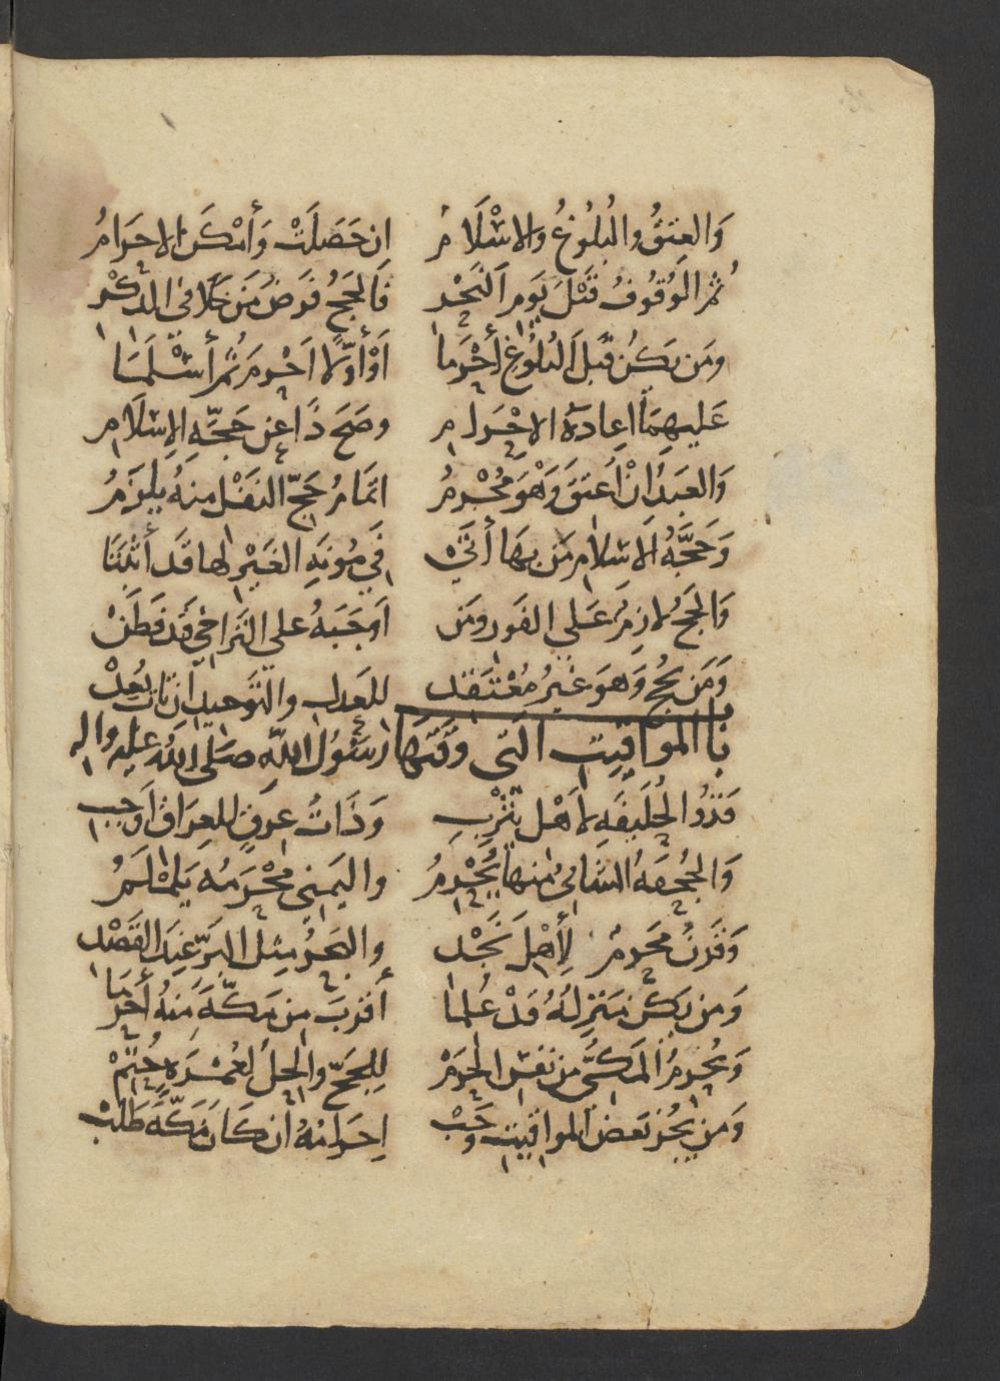 وَالعِتقُ والبُلُوغُ والاسْلَامُ إن حَصَلَتْ وَأَمْكَنَ الاحرَامُ
ثُمَّ الوُقُوفُ قَبْلَ يَومِ النَّحْرِ فَالحَجُّ فَرضُ مَن خَلَا في الذِّكْرِ
ومَن يَكُن قَبلَ البُلُوغِ أَحْرَما أَوْ أَوَّلًا احْرمَ ثُمَّ أَسْلَمَا
عَليهِمَا اعِادَةُ الاحْرَامِ وصَحَّ ذَا عن حَجَّةِ الإسْلَامِ
وَالعَبدُ انْ أُعتِقَ وَهْوَ مُحْرِمُ اتمَامُ حَجِّ النَفْلِ مِنهُ يلزَمُ
وَحَجَّةُ الاسْلَامِ مَن بهَا أَتَى في مُونَةِ الغَيْرِ لها قَد أَثْبَتَا
وَالحَجُّ لازِمٌ عَلى الفَورِ ومَن أَوجَبَهُ على التَراخِي قَد فَطَنْ
وَمَن يَحُج وَهوَ غَيرُ مُعْتَقد للعَدلِ والتَوحيدِ ان تابَ يُعِدْ
باب المواقيت التي وَقَّتَهَا رَسُولُ اللهِ صَلى الله عليه واله
فَذُو الحُلَيفَةِ لاهْلِ يَثْرِبِ وَذَاتُ عِرقٍ للعِرَاقِ أَوجِبِ
وَالجُحفَةُ الشَامِيُّ منها يُحْرِمُ واليَمنِي مُحْرَمُه يَلَمْلَمُ
وَقَرنُ مَحرمٌ لِأَهْلِ نَجْدِ والبَحرُ مِثلُ البَرِّ عِندَ القَصْدِ
وَمن يَكُن مَنزِلُهُ قَدْ عُلما أقرَبَ مِن مَكَّةَ مِنهُ أَحْرَمَا
وَيُحرِمُ المَكِّيُّ مِن نَفْسِ الحَرَمْ لِلحَجِّ والحِلُّ لِعُمْرَةٍ حُتِمْ
وَمَن يَجُز بَعضَ المواقيتِ وَجَبْ إحرَامُهُ ان كَانَ مَكَّةَ طَلَبْ